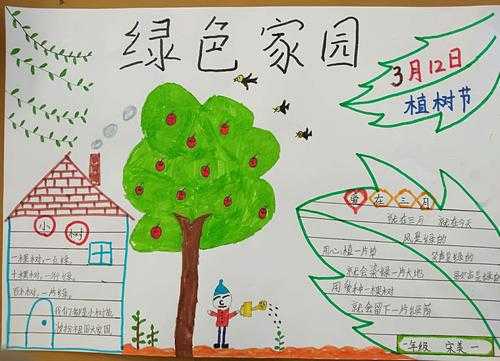 绿色家园
3月12日
植树节
小树
一棵树,一点绿,
十棵树,一行绿,
百棵树,一片绿,
我们都是小树苗
爱在三月
就在三月 就在今天
风是绿的
用心,植一片草
就会染绿一片大地
用爱种一棵树
就会留下一片绿荫
一年级 宋美一